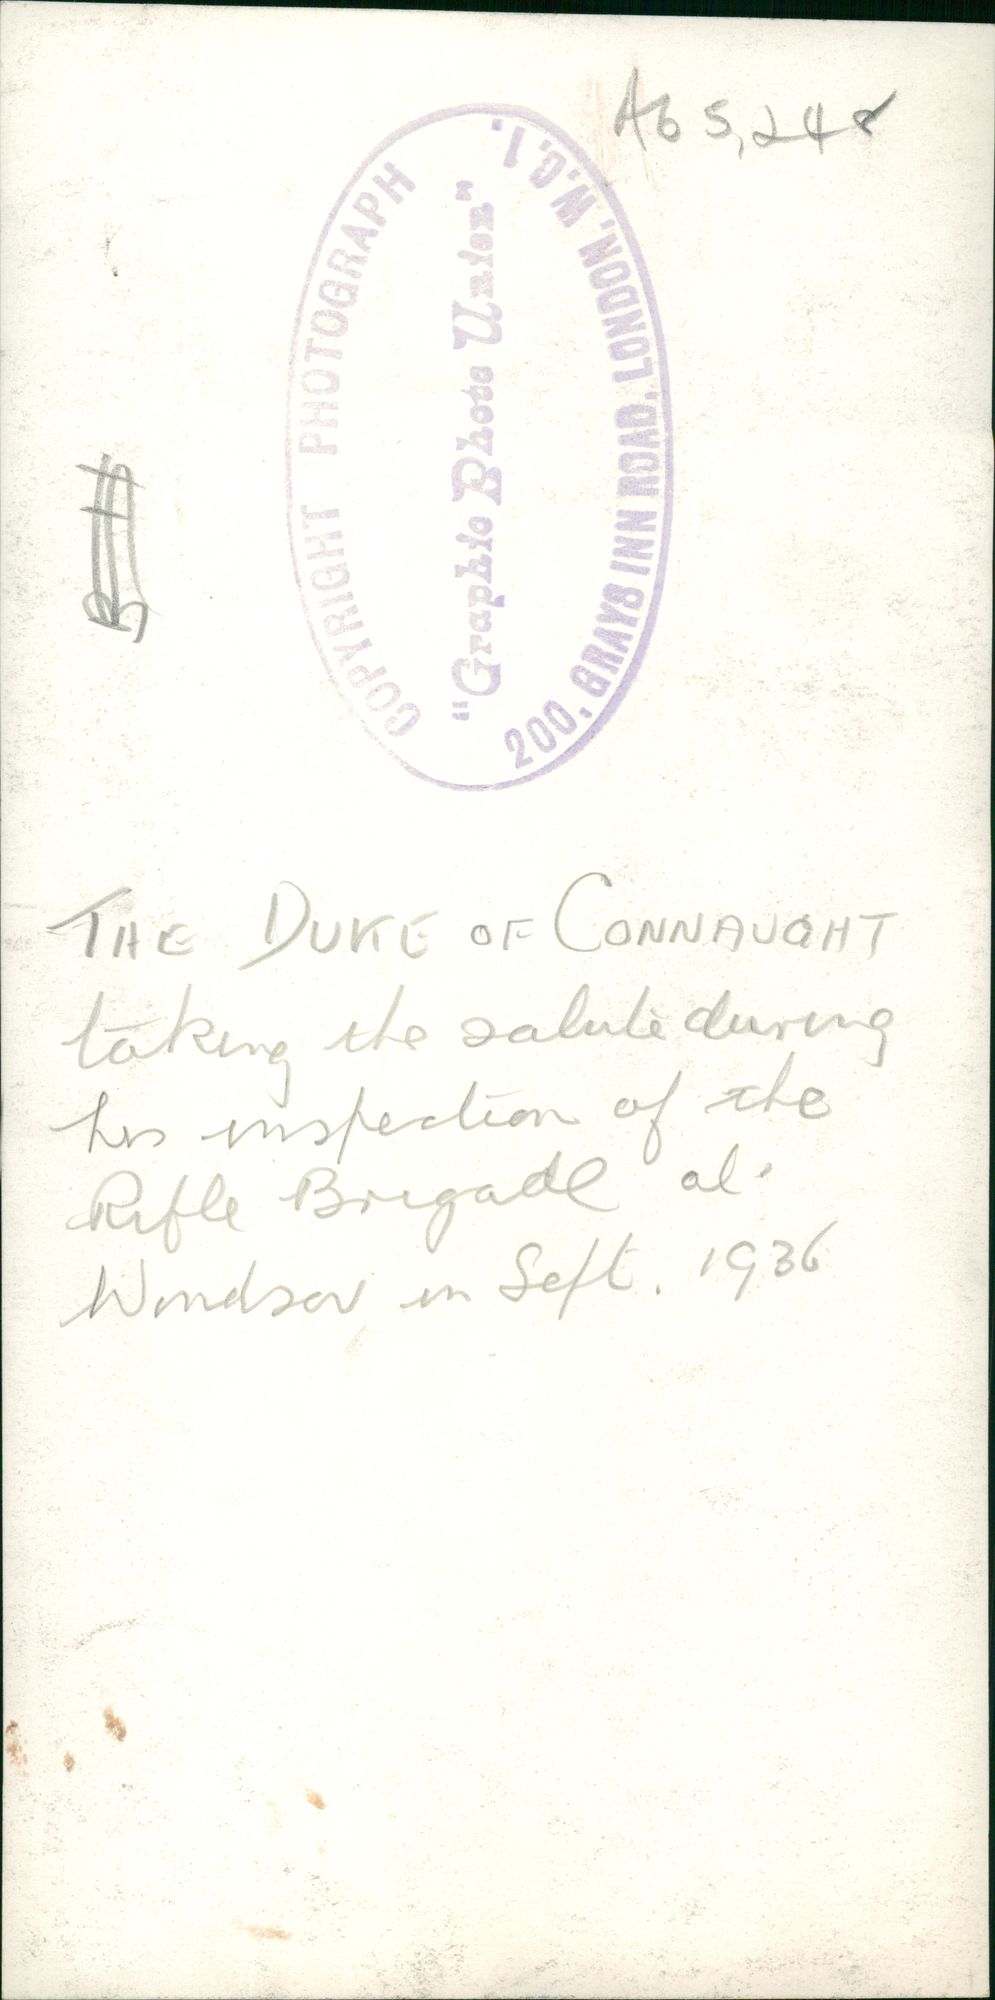 A65,248
COPYRIGHT PHOTOGRAPH
"Graphic Photo Union"
200, GRAYS INN ROAD, LONDON, W.C.1.
THE DUKE OF CONNAUGHT
taking the salute during
his inspection of the
Rifle Brigade at
Windsor in Sept. 1936